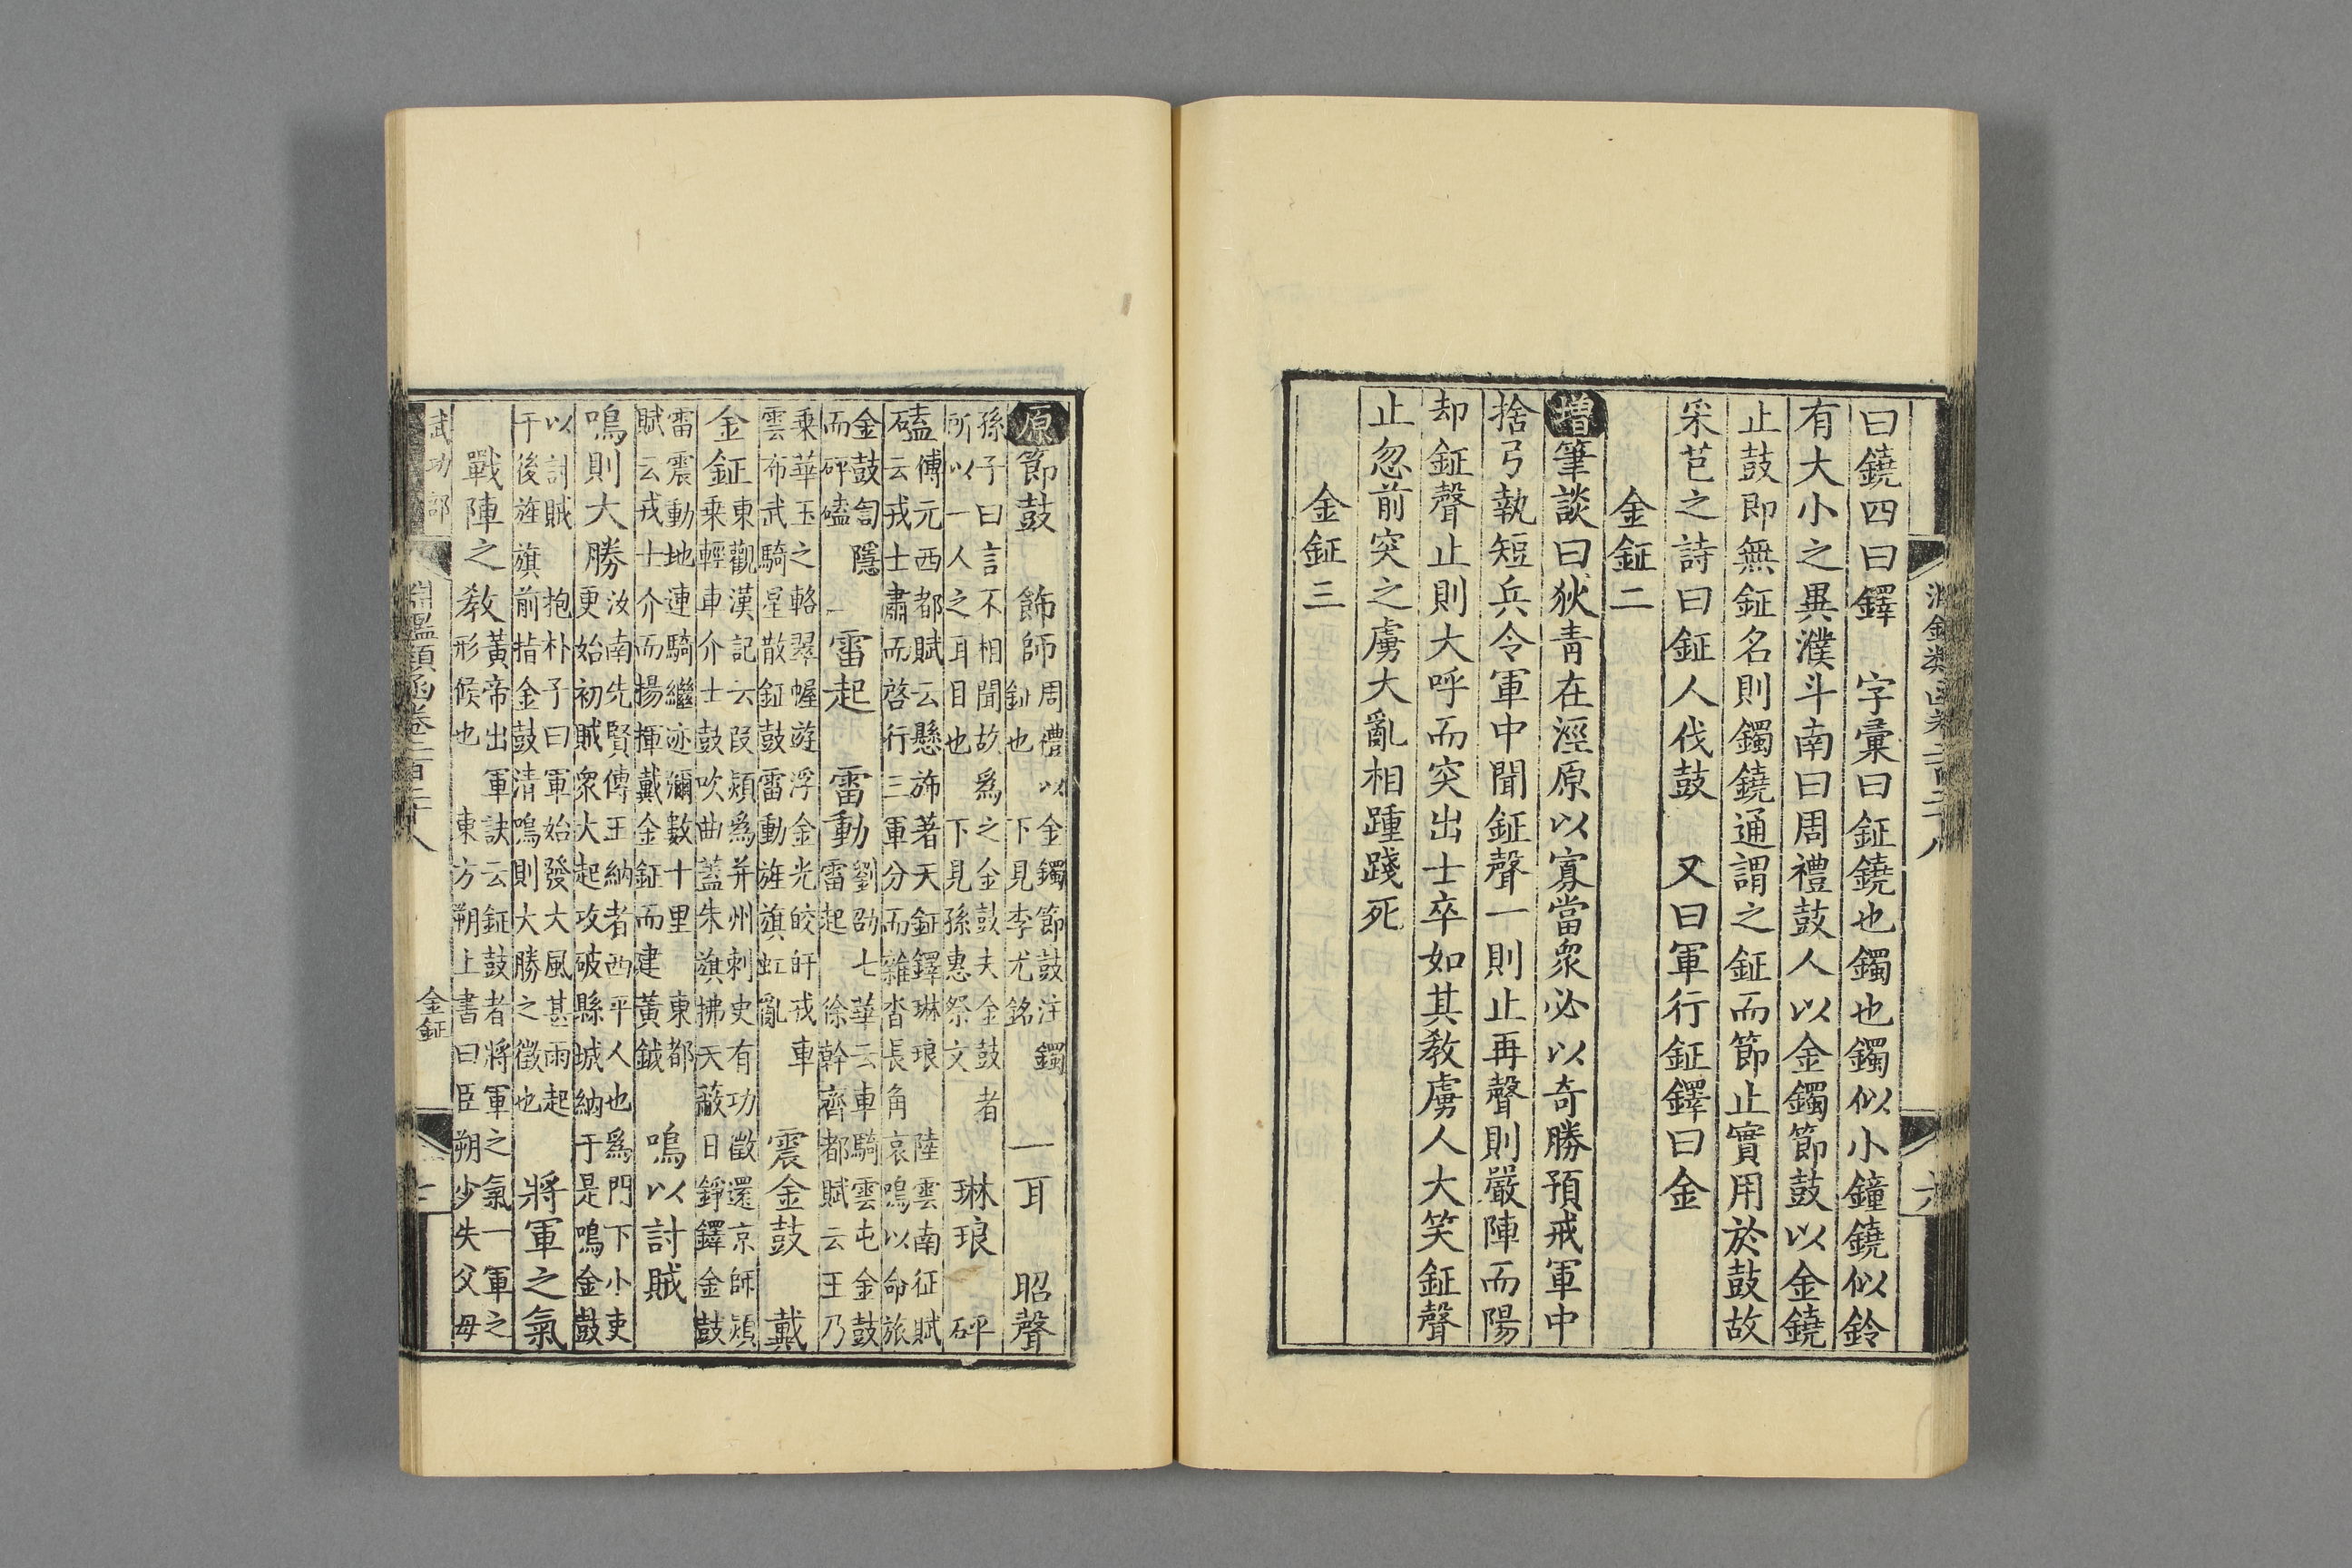 曰鐃四曰鐸　字彙曰鉦鐃也鐲也鐲似小鐘鐃似鈴
有大小之異濮斗南曰周禮鼓人以金鐲節鼓以金鐃
止鼓即無鉦名則鐲鐃通謂之鉦而節止實用於鼓故
采芑之詩曰鉦人伐鼓　又曰軍行鉦鐸曰金
金鉦二
增筆談曰狄青在涇原以寡當衆必以奇勝預戒軍中
捨弓執短兵令軍中聞鉦聲一則止再聲則嚴陣而陽
却鉦聲止則大呼而突出士卒如其教虜人大笑鉦聲
止忽前突之虜大亂相踵踐死
金鉦三
原節鼓　飾師周禮以金鐲節鼓注鐲鉦也　下見李尤銘　一耳　昭聲
孫子曰言不相聞故爲之金鼓夫金鼓者所以一人之耳目也　下見孫惠祭文　琳琅　砰
磕傅元西都賦云懸斾著天鉦鐸琳琅　陸雲南征賦云戎士肅而啓行三軍分而雜沓長角哀鳴以命旅
金鼓訇隱而砰磕　雷起　雷動劉劭七華云車騎雲屯金鼓雷起　徐幹齊都賦云王乃
乗華玉之輅翠幄遊浮金光皎旰戎車雲布武騎星散鉦鼓雷動旌旗虹亂　震金鼓　戴
金鉦東觀漢記云段熲爲并州刺史有功徵還京師熲乗輕車介士鼓吹曲蓋朱旗拂天蔽日錚鐸金鼓
雷震動地連騎繼迹彌數十里　東都賦云戎士介而揚揮戴金鉦而建黃鉞　鳴以討賊
鳴則大勝汝南先賢傳王納者西平人也爲門下小吏更始初賊衆大起攻破縣城納于是鳴金鼓
以討賊　抱朴子曰軍始發大風甚雨起于後旌旗前指金鼓清鳴則大勝之徵也　將軍之氣
戰陣之教黃帝出軍訣云鉦鼓者將軍之氣一軍之形候也　東方朔上書曰臣朔少失父母
武功部　淵鑑類函卷二百二十八　金鉦